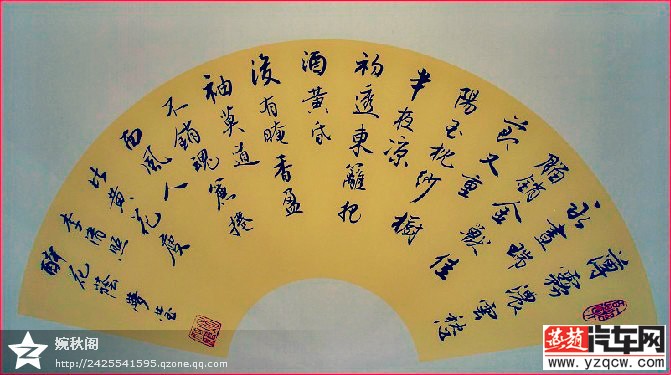 薄霧濃雲愁
永晝瑞
腦銷金獸佳
節又重
陽玉枕紗橱
半夜凉
初透東籬把
酒黄昏
後有暗香盈
袖莫道
不銷魂簾捲
西風人
比黄花瘦
李清照
醉花蔭
婉秋阁
http://2425541595.qzone.qq.com
燕赵汽车网
www.yzqcw.com